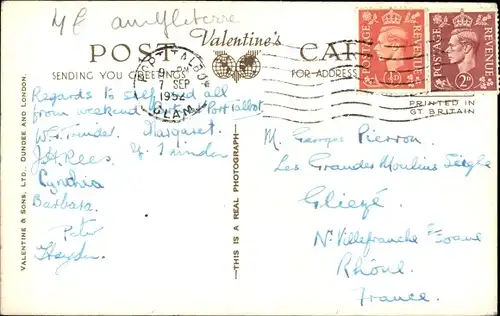 Angleterre
POST Valentine's CARD
SENDING YOU GREETINGS FOR ADDRESS
PORT TALBOT
7 SEP
1952
GLAM
POSTAGE REVENUE
½D
POSTAGE REVENUE
2D
PRINTED IN
GT BRITAIN
Regards to self and all
from weekend Port Talbot
Margaret
J H Rees
Cynthia
Barbara
Peter
M. Georges Pierron.
Les Grandes Moulins
Gliezé
Nr Villefranche
Rhône.
France.
VALENTINE & SONS, LTD. DUNDEE AND LONDON.
—THIS IS A REAL PHOTOGRAPH—